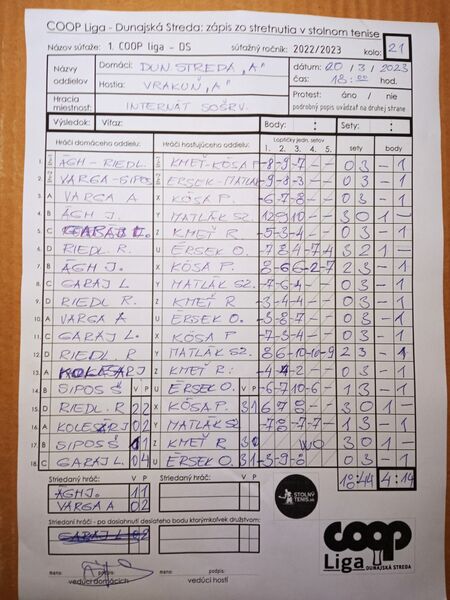 COOP Liga - Dunajská Streda: zápis zo stretnutia v stolnom tenise
Názov súťaže: 1. COOP liga - DS súťažný ročník: 2022/2023 kolo: 21
Názvy oddielov Domáci: DUN. STREDA „A" dátum: 20 / 3 / 2023
Hostia: VRAKUŇ „A" čas: 18:00 hod.
Hracia miestnosť: INTERNÁT SOŠRV. Protest: áno / nie
podrobný popis uvádzať na druhej strane
Výsledok: Víťaz: Body: : Sety: :
Hráči domáceho oddielu: Hráči hosťujúceho oddielu: Loptičky jedn. setov: sety body
1. 2. 3. 4. 5.
1. ÁGH - RIEDL. KMEŤ - KÓSA P -8 -9 -7 - - 0 3 - 1
2. VARGA - SIPOS ÉRSEK - MATLÁK -9 -8 -3 - - 0 3 - 1
3. A VARGA A X KÓSA P. -6 -7 -8 - - 0 3 - 1
4. B ÁGH J. Y MATLÁK SZ. 12 9 10 - - 3 0 1 -
5. C GARAJ L. Z KMEŤ R -5 -3 -4 - - 0 3 - 1
6. D RIEDL R. U ÉRSEK O. 3 2 1 -
7. B ÁGH J. X KÓSA P. 8 -6 6 -2 -7 2 3 - 1
8. C GARAJ L Y MATLÁK SZ. 0 3 - 1
9. D RIEDL R. Z KMEŤ R -3 -4 -4 - - 0 3 - 1
10. A VARGA A U ÉRSEK O. -3 -8 -7 - - 0 3 - 1
11. C GARAJ L. X KÓSA P -7 -3 -4 - - 0 3 - 1
12. D RIEDL. R Y MATLÁK SZ. 8 6 -10 -10 -9 2 3 - 1
13. A Z KMEŤ R. 1 3 - 1
14. B SIPOS Š V P U ÉRSEK O. V P -6 -7 10 -6 - 1 3 - 1
15. D RIEDL. R 2 2 X KÓSA P. 3 1 6 7 8 - - 3 0 1 -
16. A KOLESÁR J 0 2 Y MATLÁK SZ -7 8 -7 -7 - 1 3 - 1
17. B SIPOS Š 1 1 Z KMEŤ R WO 3 0 1 -
18. C GARAJ L. 0 4 U ÉRSEK O. -3 -9 -8 0 3 - 1
Striedaný hráč: V P Striedaný hráč: V P 18:44 4:14
ÁGH J. 1 1
VARGA A 0 2
Striedaní hráči - po dosiahnutí desiateho bodu ktorýmkoľvek družstvom:
STOLNÝ
TENIS.SK
coop
Liga DUNAJSKÁ STREDA
meno: podpis: meno: podpis:
vedúci domácich vedúci hostí